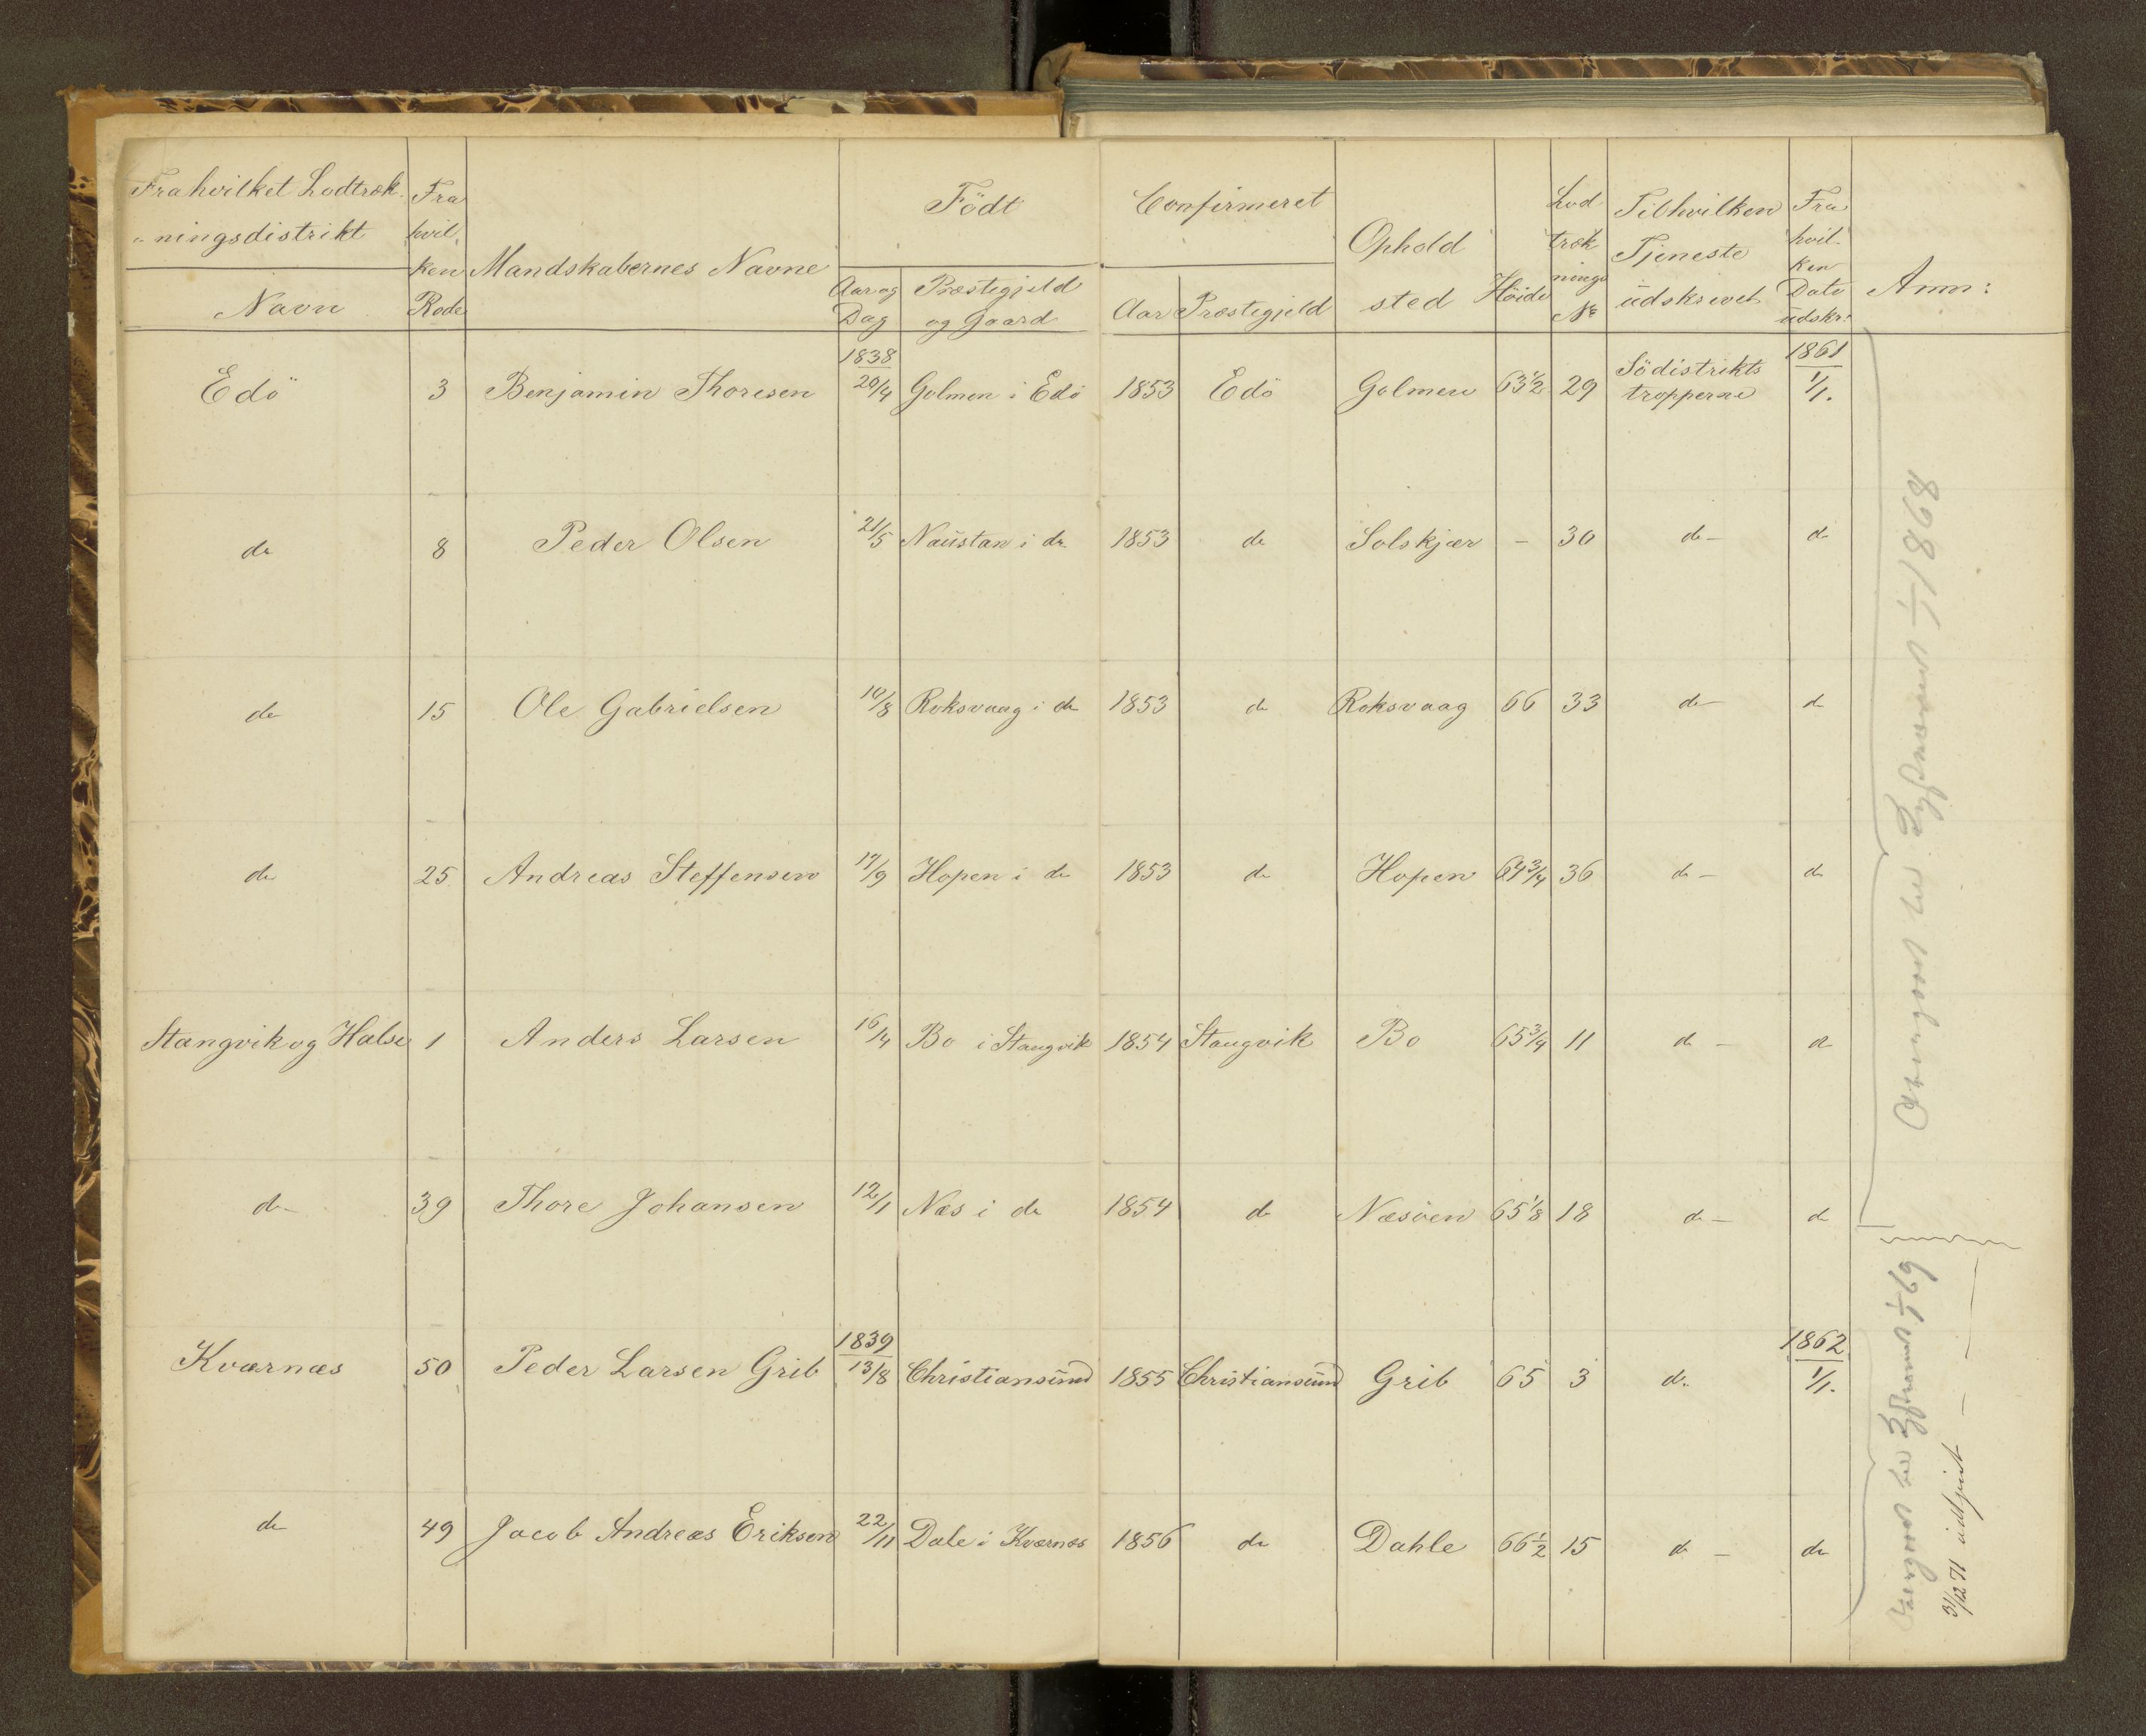 Fra hvilket Lodtræk-
ningsdistrikt
Navn
Fra
hvil
ken
Rode
Mandskabernes Navne
Födt
Aar og
Dag
Præstegjeld
og Gaard
Confirmeret
Aar
Præstegjeld
Ophold
sted
Höide
Lod
træk
nings
No
Til hvilken
Tjeneste
üdskrevet
Fra
hvil-
ken
Dato
üdskr:
Anm:
Edö 3 Benjamin Thoresen 1838 20/4 Golmen i Edö 1853 Edö Golmen 63 1/2 29 Södistrikts tropperne 1861 1/1.
do 8 Peder Olsen 21/5 Naüstan i do 1853 do Solskjær - 30 do - do
do 15 Ole Gabrielsen 10/8 Roksvaag i do 1853 do Roksvaag 66 33 do - do
do 25 Andreas Steffensen 17/9 Hopen i do 1853 do Hopen 64 3/4 36 do - do
Stangvik og Halse 1 Anders Larsen 16/4 Bo i Stangvik 1854 Stangvik Bo 65 3/4 11 do - do
do 39 Thore Johansen 12/1 Næs i do 1854 do Næsöen 65 1/8 18 do - do
Kværnæs 50 Peder Larsen Grib 1839 13/8 Christiansünd 1855 Christiansünd Grib 65 3 do 1862 1/1.
do 49 Jacob Andreas Eriksen 22/11 Dale i Kværnæs 1856 do Dahle 66 1/2 15 do - do
1/1 1868
1/1 69
31/12 71 udtjent —